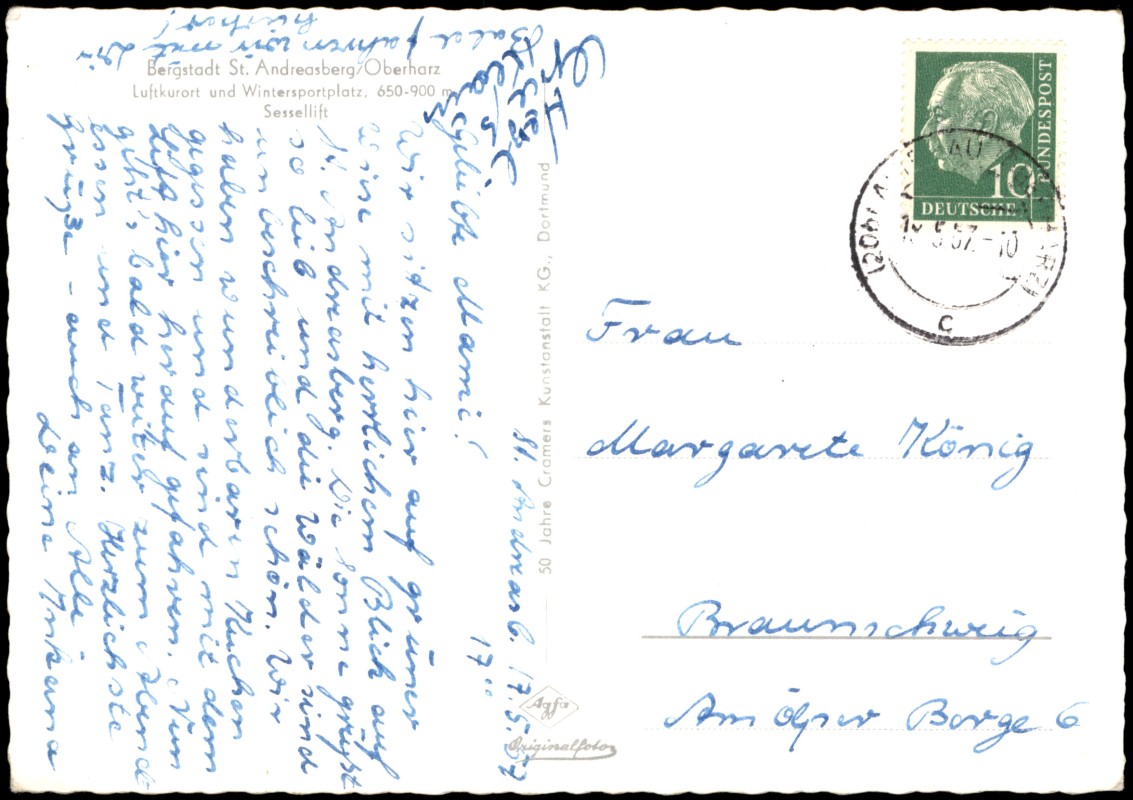 Bergstadt St. Andreasberg/Oberharz
Luftkurort und Wintersportplatz, 650-900 m
Sessellift
St. Andreasb. 17.5.57
17°°
Geliebte Mami!
Wir sitzen hier auf grüner
Wiese mit herrlichem Blick auf
St. Andreasberg. Die Sonne grüßt
so lieb und die Wälder sind
unbeschreiblich schön. Wir
haben wunderbaren Kuchen
gegessen und sind mit dem
Lift hier herauf gefahren. Nun
geht's bald weiter zum Abend
essen und Tanz. Herzlichste
Grüße - auch an Alle
Deine Inkana
Bald fahren wir mit Dir
hierher!
Klaus
50 Jahre Cramers Kunstanstalt KG., Dortmund
Agfa
Originalfoto
DEUTSCHE
BUNDESPOST
10
(20b)
5.57.-10
c
Frau
Margarete König
Braunschweig
Am Ölper Berge 6